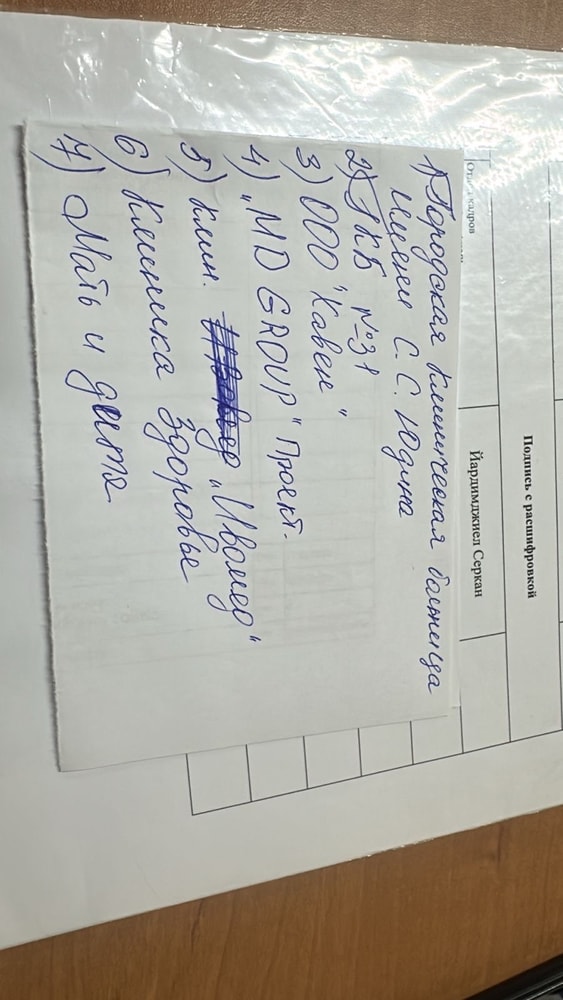 Подпись с расшифровкой
Йардимджиел Серкан
кадров
1) Городская клиническая больница
имени С. С. Юдина
2) ГКБ №31
3) ООО "Кавен"
4) "MD GROUP" Проект.
5) Клин. "Ивомед"
6) Клиника Здоровье
7) Мать и дитя